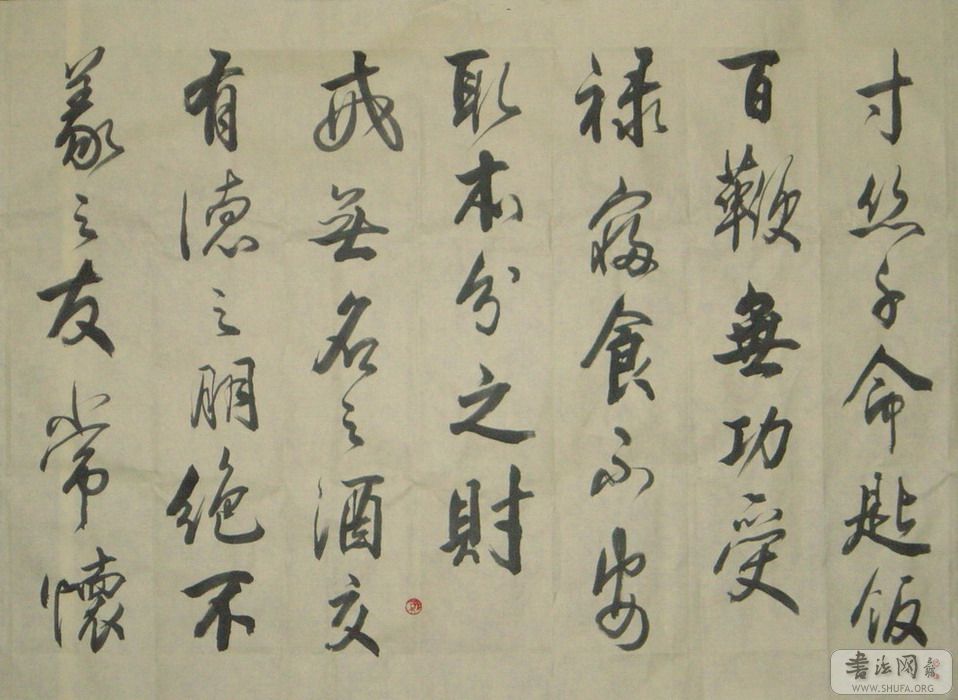 寸丝千命匙饭
百鞭無功受
禄寝食不安
取本分之財
戒無名之酒交
有德之朋绝不
義之友常懷
書法网
WWW.SHUFA.ORG